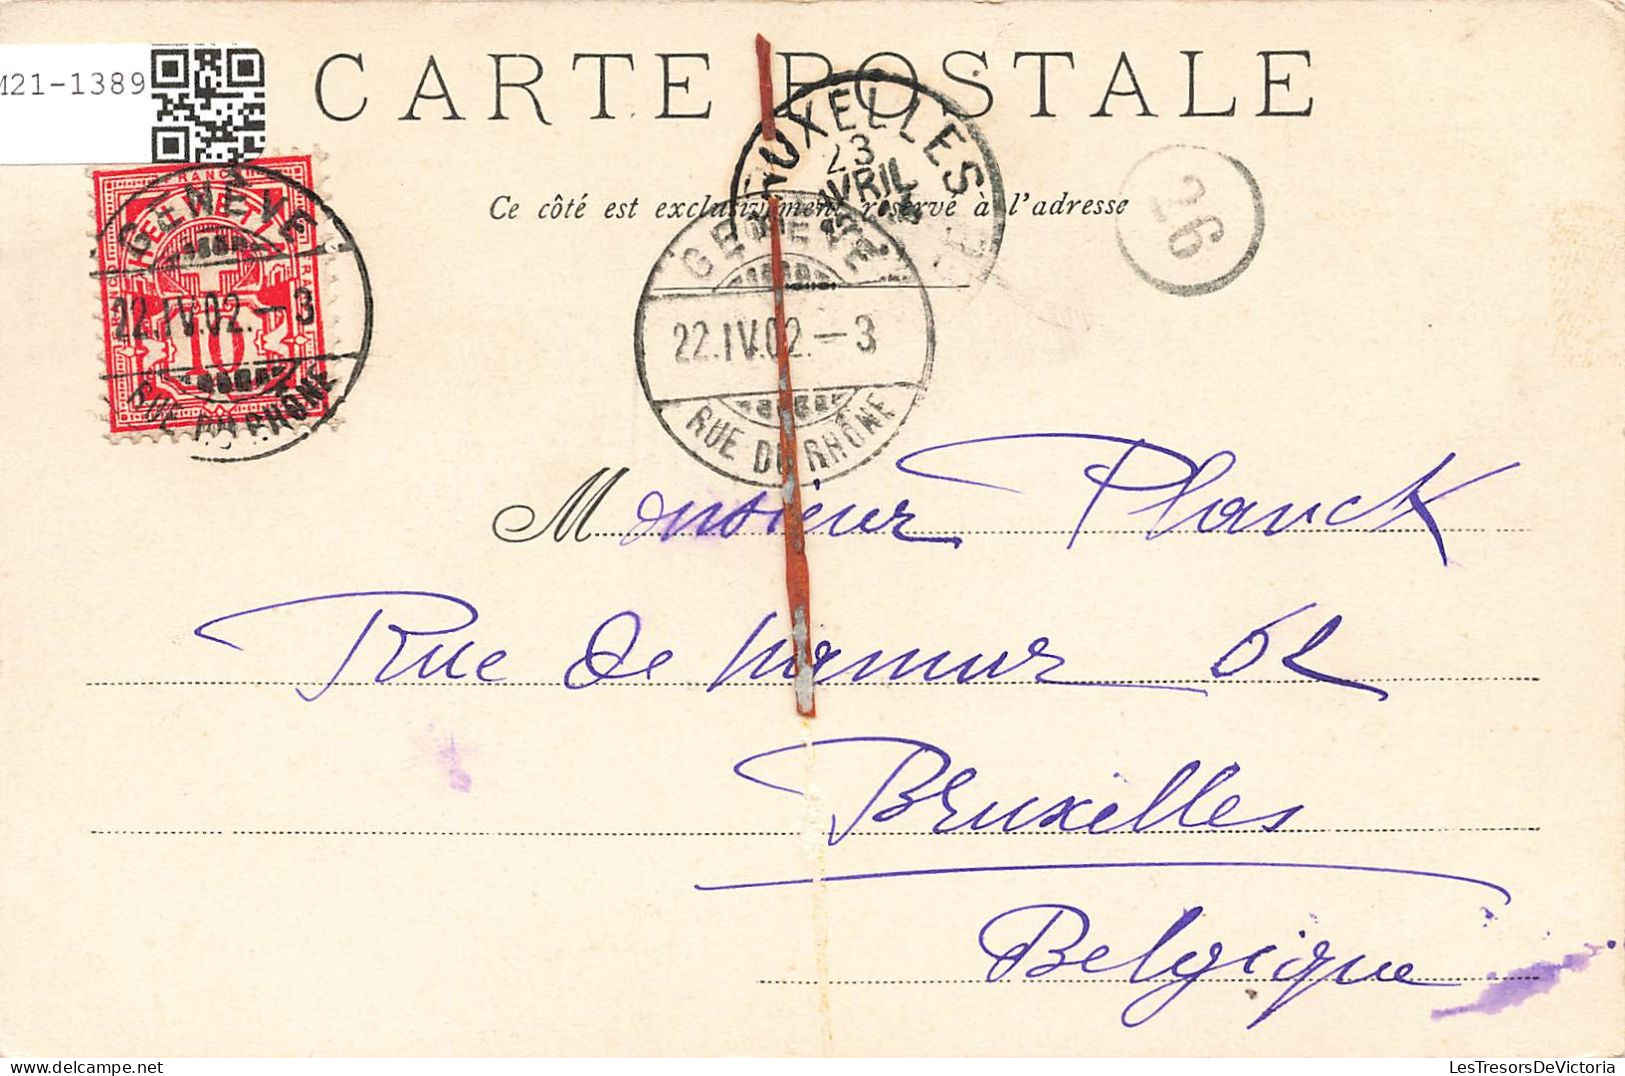 M21-1389
CARTE POSTALE
BRUXELLES
23
AVRIL
Ce côté est exclusivement réservé à l'adresse
26
FRANCO
HELVETIA
10
GENÈVE
22.IV.02.-3
RUE DU RHÔNE
GENÈVE
22.IV.02.-3
RUE DU RHÔNE
Monsieur Planck
Rue de Namur 62
Bruxelles
Belgique
LesTresorsDeVictoria